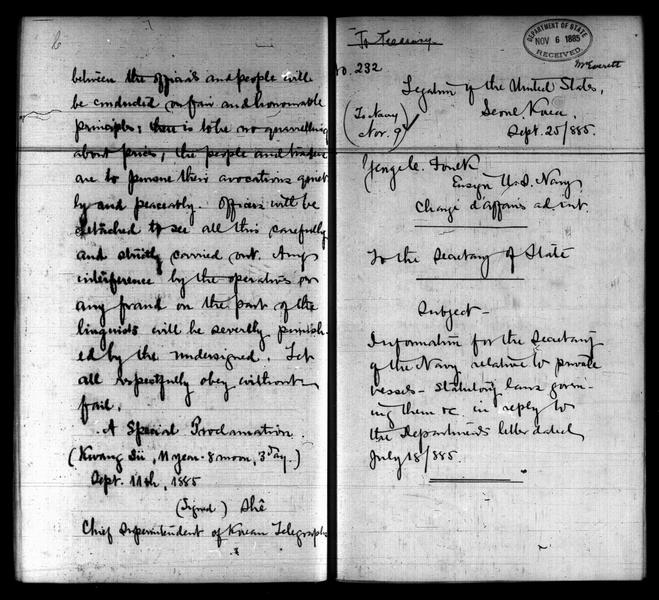 6
between the officials and people will
be conducted on fair and honourable
principles; there is to be no quarrelling
about prices, the people and traders
are to pursue their avocations quiet
ly and peaceably. Officers will be
detached to see all this carefully
and strictly carried out. Any
interference by the operators or
any fraud on the part of the
linguists will be severely punish-
ed by the undersigned. Let
all respectfully obey without
fail.
A Special Proclamation
(Kwang Sü, 11 year-8 moon, 3rd day.)
Sept. 11th, 1885
(Signed) Shê
Chief Superintendent of Korean Telegraphs
To Treasury
DEPARTMENT OF STATE
NOV 6 1885
RECEIVED
McEverett
No. 232
Legation of the United States,
Seoul, Korea,
Sept. 25/885.
(To Navy
Nov. 9)
George C. Foulk
Ensign U.S. Navy
Chargé d'affaires ad. int
To the Secretary of State
Subject-
Information for the Secretary
of the Navy relative to private
vessels- statutory laws govern-
ing them &c. in reply to
the Department's letter dated
July 18/885.